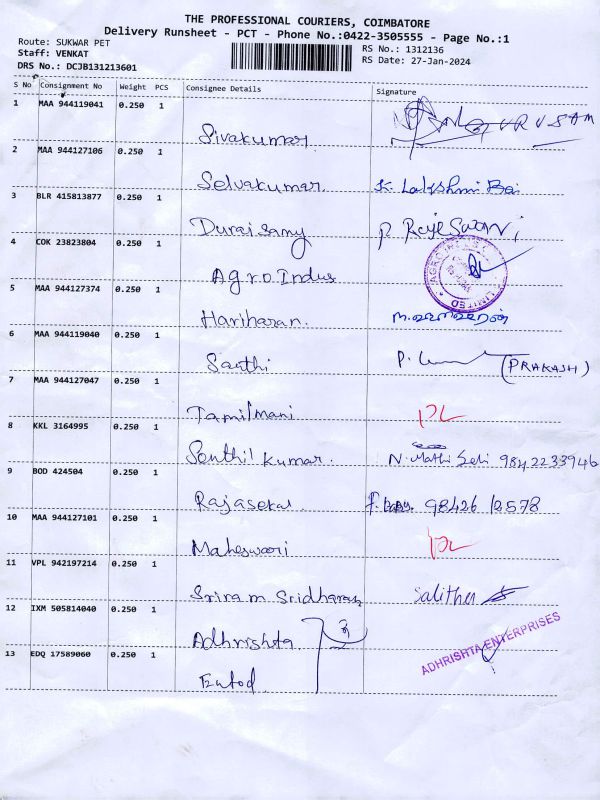 THE PROFESSIONAL COURIERS, COIMBATORE
Delivery Runsheet - PCT - Phone No.:0422-3505555 - Page No.:1
Route: SUKWAR PET
Staff: VENKAT
DRS No.: DCJB131213601
RS No.: 1312136
RS Date: 27-Jan-2024
S No Consignment No Weight PCS Consignee Details Signature
1 MAA 944119041 0.250 1
Sivakumar
2 MAA 944127106 0.250 1
Selvakumar. K. Lakshmi Bai
3 BLR 415813877 0.250 1
Duraisamy
4 COK 23823804 0.250 1
Agro Indus LIMITED
5 MAA 944127374 0.250 1
Hariharan.
6 MAA 944119040 0.250 1
Santhi P. (PRAKASH)
7 MAA 944127047 0.250 1
Tamilmani
8 KKL 3164995 0.250 1
Senthil Kumar. N. 9842233946
9 BOD 424504 0.250 1
Rajasekar 98426 12578
10 MAA 944127101 0.250 1
Maheswari
11 VPL 942197214 0.250 1
Sriram Sridharan
12 IXM 505814040 0.250 1
Adhrishta ADHRISHTA ENTERPRISES
13 EDQ 17589060 0.250 1